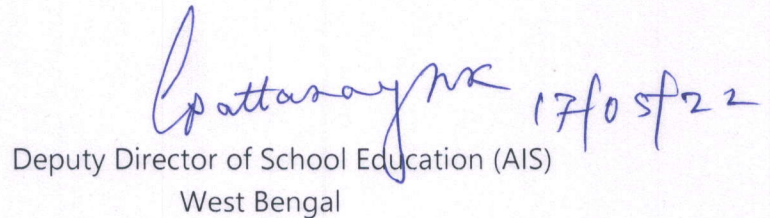 17/05/22
Deputy Director of School Education (AIS)
West Bengal